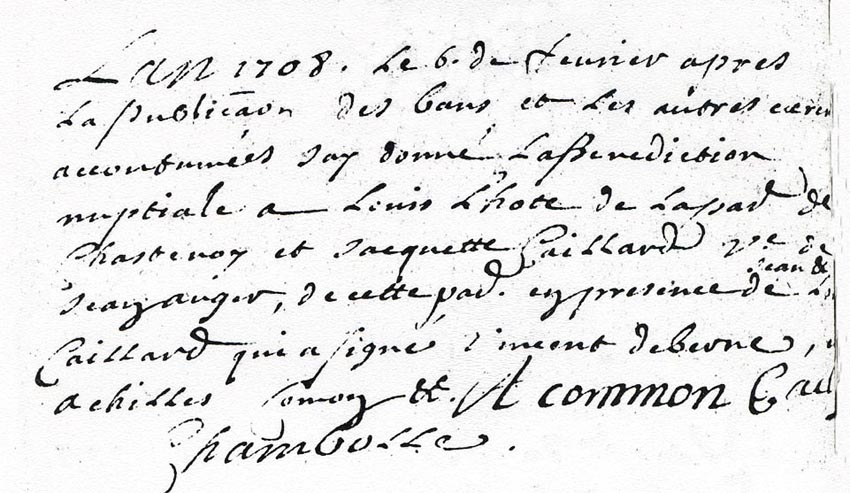 Lan 1708. Le 6. de fevrier apres
La publicãon des bans et Les autres cerem
accoutumées Jay donné La Benediction
nuptiale a Louis Lhote de La par de
Chastenoy et Jacquette Caillard vve de
Jean auger, de cette par. en presence de Jean &
Caillard qui a signé, Vincent deberne,
achilles &c. A common Caill
Chambolle.